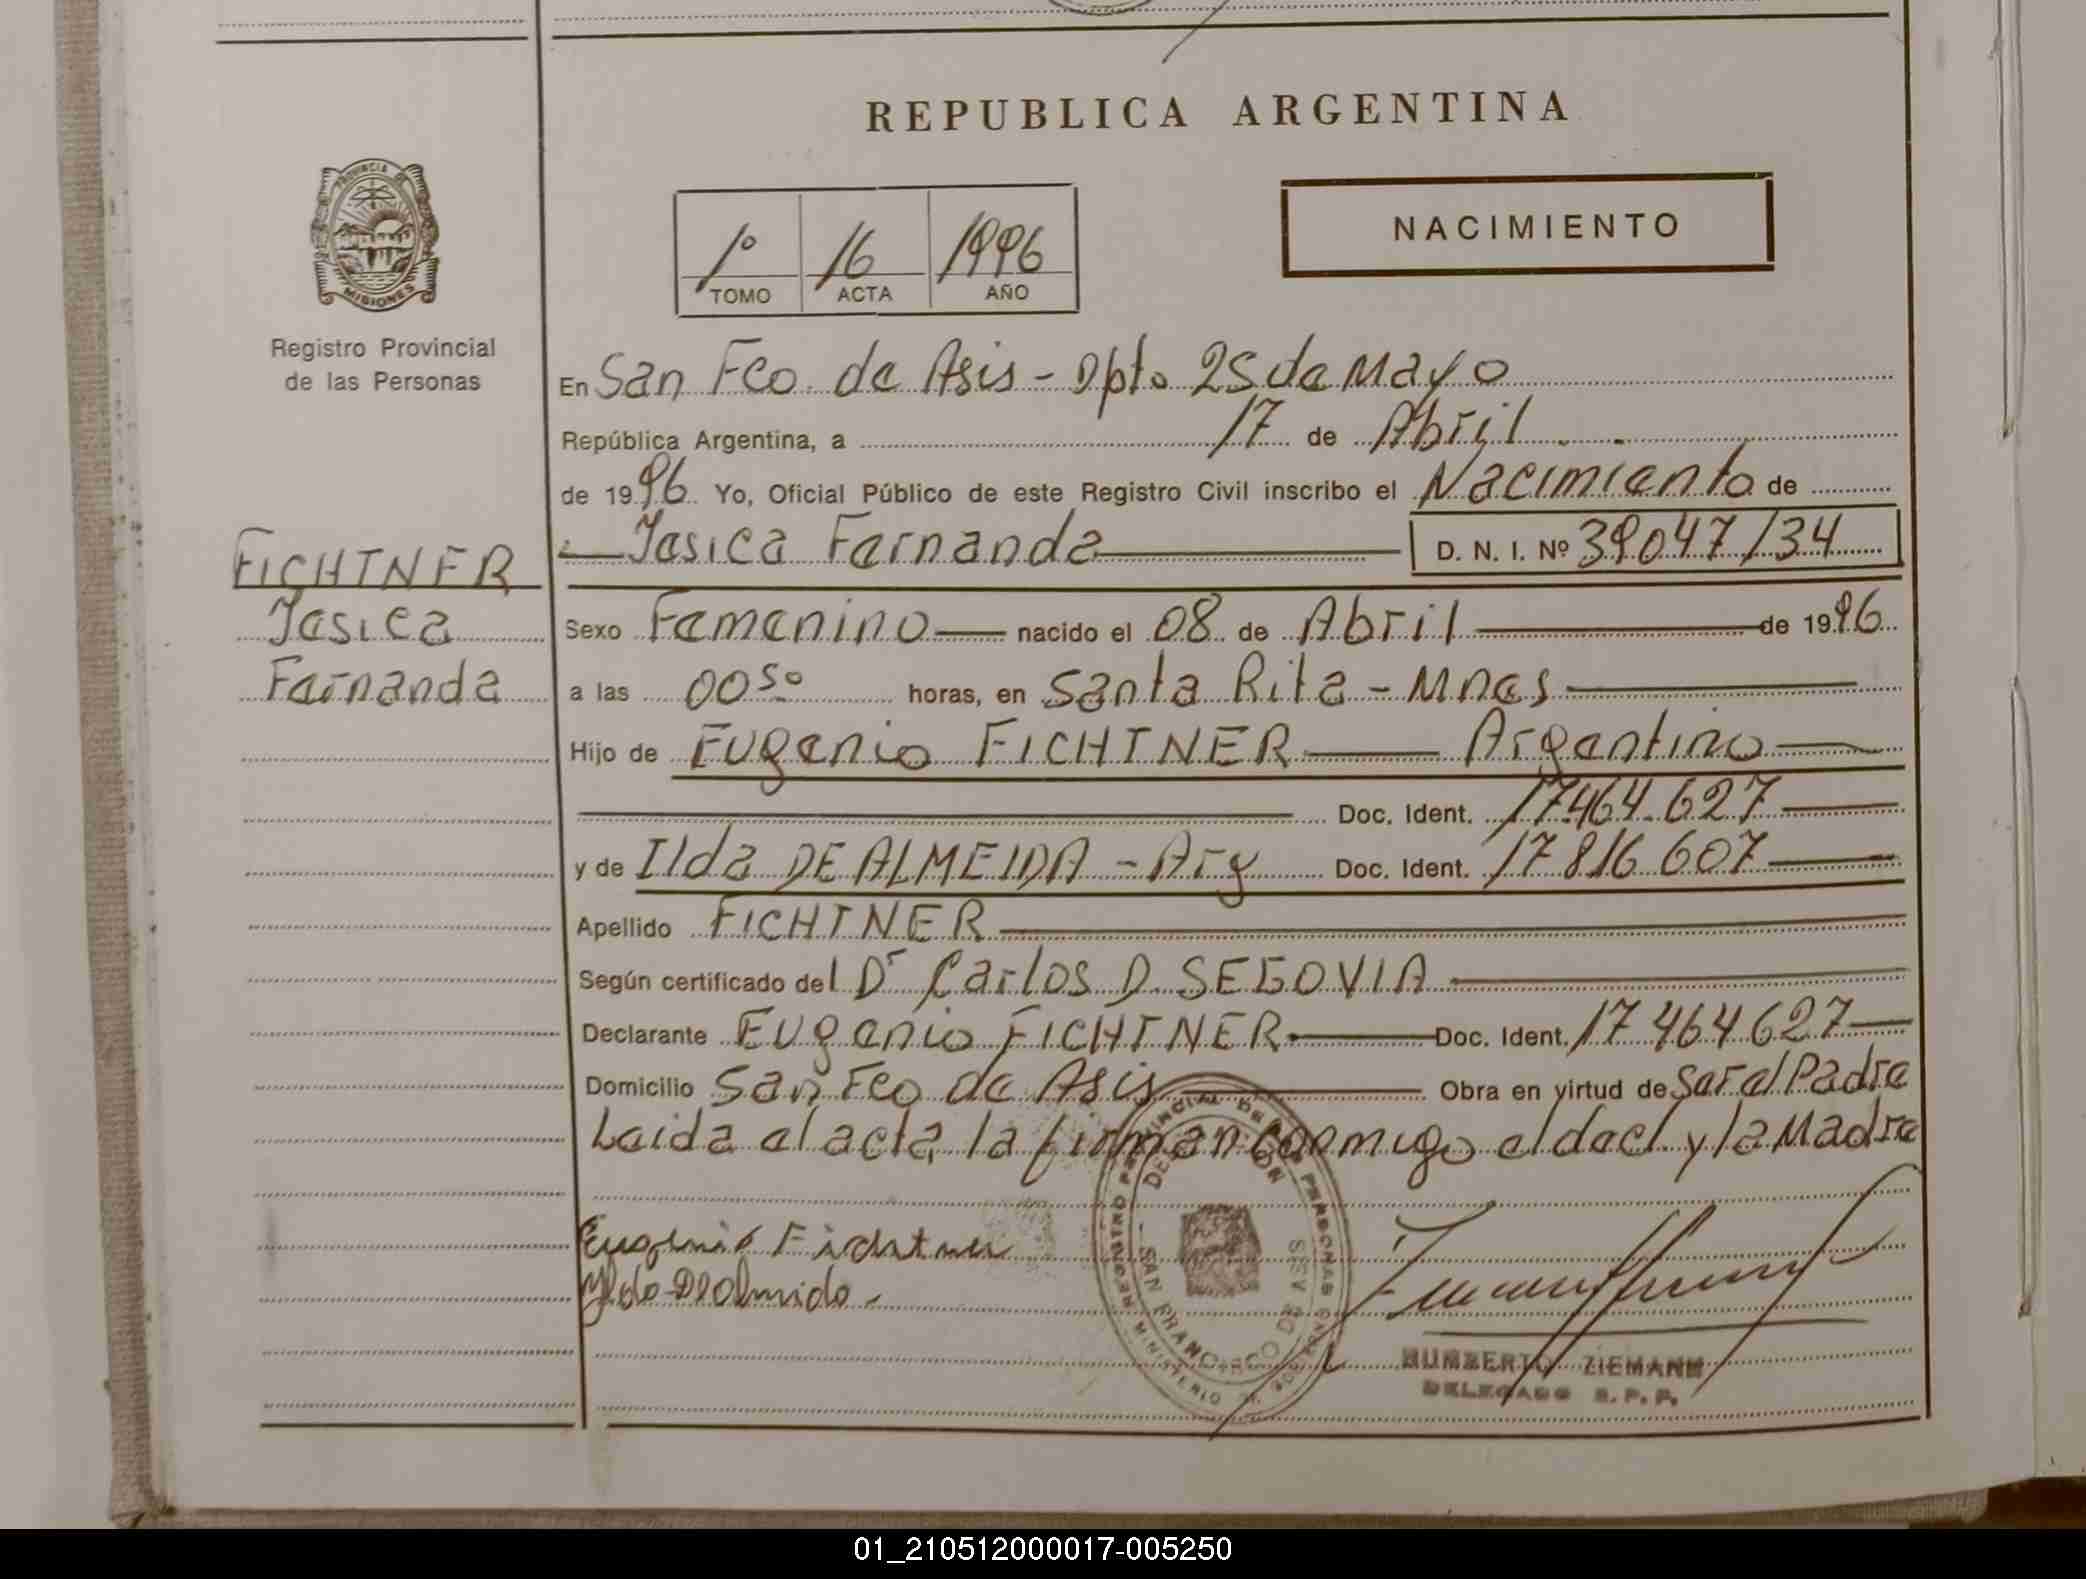 REPUBLICA ARGENTINA
PROVINCIA DE
MISIONES
Registro Provincial
de las Personas
1º 16 1996
TOMO ACTA AÑO
NACIMIENTO
En San Fco. de Asis - Dpto 25 de Mayo
República Argentina, a 17 de Abril
de 1996 Yo, Oficial Público de este Registro Civil inscribo el Nacimiento de
Jesica Fernanda D. N. I. Nº 39047134
FICHTNER
Jesica
Fernanda
Sexo Femenino nacido el 08 de Abril de 1996
a las 00⁵⁰ horas, en Santa Rita - Mnes
Hijo de Eugenio FICHTNER Argentino
Doc. Ident. 17.464.627
y de Ilda DE ALMEIDA - Arg Doc. Ident. 17 816 607
Apellido FICHTNER
Según certificado del Dr Carlos D. SEGOVIA
Declarante Eugenio FICHTNER Doc. Ident. 17 464 627
Domicilio San Fco de Asis Obra en virtud de Ser el Padre
Leida el acta, la firman conmigo el decl y la Madre
Eugenio Fichtner
SAN FRANCISCO DE ASIS
HUMBERTO ZIEMANN
DELEGADO R.P.P.
01_210512000017-005250